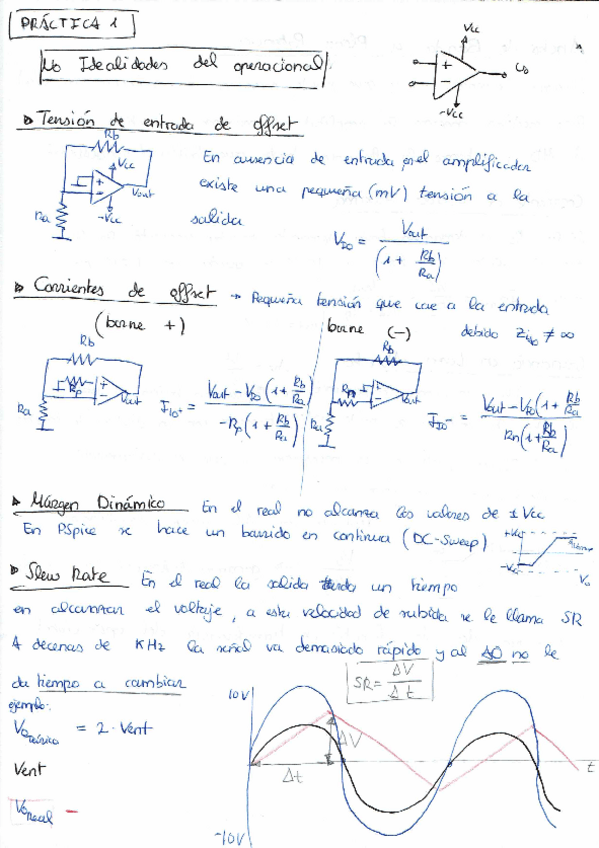 PRÁCTICA 1
No Idealidades del operacional
Vcc
+
-
Uo
-Vcc
Tensión de entrada de offset
Rb
Vcc
+
-
Vout
-Vcc
Ra
En ausencia de entrada en el amplificador
existe una pequeña (mV) tensión a la
salida
VIO = Vout / (1 + Rb/Ra)
Corrientes de offset → Pequeña tensión que cae a la entrada
debido Zin ≠ ∞
(borne +)
borne (-)
Rb
Rp
+
-
Vout
Ra
IIO+ = Vout - VIO (1 + Rb/Ra) / -Rp (1 + Rb/Ra)
Rb
Rn
+
-
Vout
Ra
IIO- = Vout - VIO (1 + Rb/Ra) / Rn (1 + Rb/Ra)
Márgen Dinámico En el real no alcanza los valores de ±Vcc
En PSpice se hace un barrido en continua (DC-Sweep)
+Vcc
-Vcc
Slew Rate En el real la salida tarda un tiempo
en alcanzar el voltaje, a esta velocidad de subida se le llama SR
A decenas de KHz la señal va demasiado rápido y al AO no le
da tiempo a cambiar
SR = ΔV / Δt
ejemplo:
Voteórico = 2 · Vent
Vent
Voreal -
10V
ΔV
Δt
t
-10V